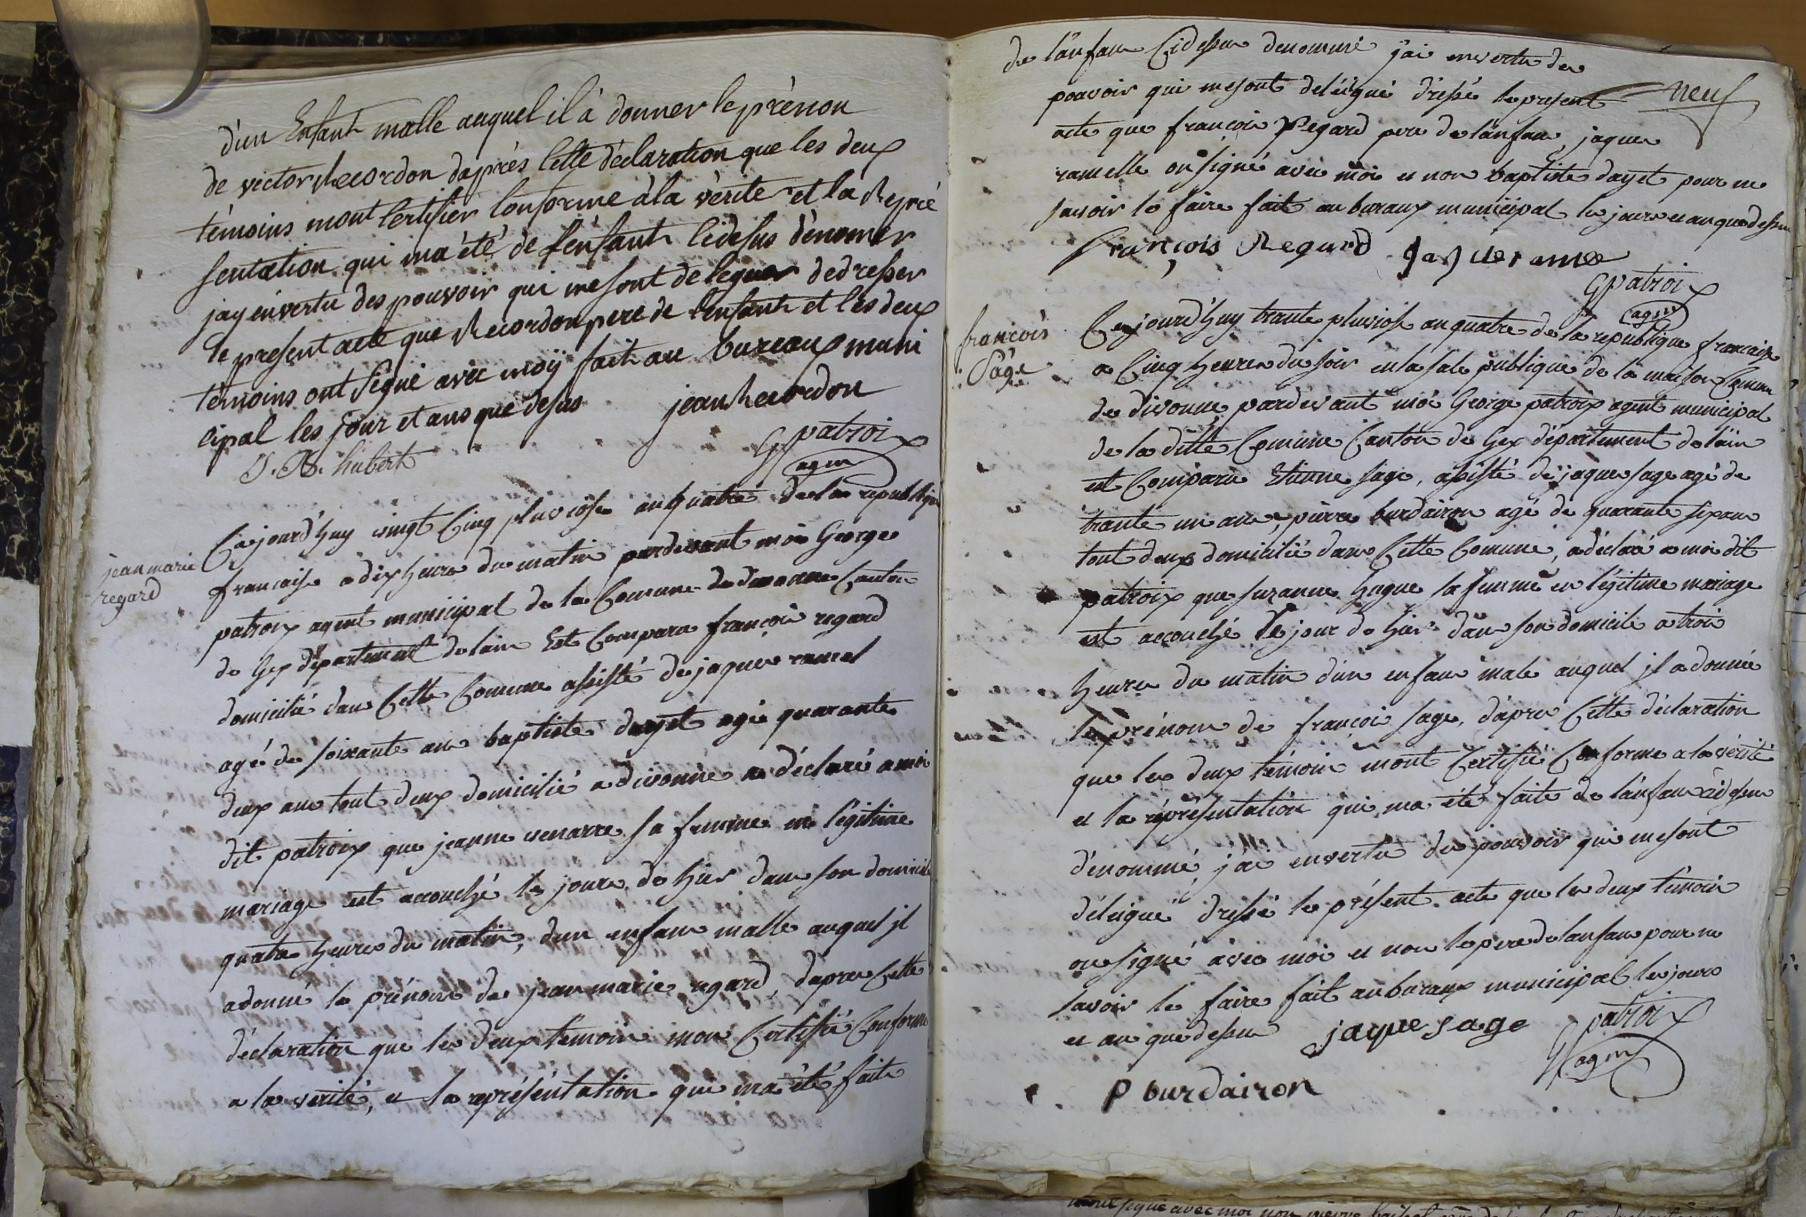 d'un Enfant malle auquel il à donner le prènon
de victor Recordon daprès Cette déclaration que les deux
témoins mont Certifier Conforme à la vèrite et la Repré
sentation qui ma été de l'enfant Cidesus dénomer
jay envertu des pouvoir qui me sont deleguer dedresser
le present acte que Recordon pere de l'enfant et les deux
témoins ont signé avec moÿ fait au bureaux muni
cipal les jour et ans que desus jean Recordon
J. B. hubert GPatroix
agen
jean marie
regard
Cejourd'huy vingt Cinq pluviôse an quatre de la republique
francaise a dix heure du matin pardevant moi George
patroix agent municipal de la Comune de divonne Canton
de Gex département de lain Est Comparu françois regard
domicilié dans Cette Comune assisté de jaques ramel
agé de soixante ans baptiste dayet agé quarante
deux ans tout deux domicilié a divonne a déclaré a moi
dit patroix que jeanne venarre sa femme en légitime
mariage est accouché le jour de hier dans son domicile
quatre heures du matin, d'un enfan malle auquel jl
adonné le prénom de jean marie regard, dapres Cette
déclaration que les deux temoin mon Certifié Conforme
a la verité, et la représentation qui ma été faite
de l'anfan Cidessus denommé j'ai envertu des
pouvoir qui mesont deléigué dressé le present neuf
acte que francois Regard pere de l'anfan jaques
ramelle on signé avec moi et non baptiste dayet pour ne
savoir le faire fait au buraux municipal les jours et an que dessus
François Regard Jaques ramel
GPatroix
agen
francois
Sage
Cejourd'huy trante pluviose an quatre de la republique francaise
a Cinq heures du soir en la sale publique de la maison Comune
de divonne pardevant moi George patroix agent municipal
de la ditte Comune Canton de Gex département de l'ain
est Comparu Etienne sage, assisté de jaque sage agé de
trante un ans, pierre burdairon agé de quarante six ans
tout deux domicilié dans Cette Comune, a déclaré a moi dit
patroix que suzanne hugue sa femme en légitime mariage
est accouché le jour de hier dans son domicile a trois
heures du matin d'un enfan male auquel jl a donné
le prénom de françois sage, d'apres Cette déclaration
que les deux témoin mont Certifié Conforme a la vérité
et la représentation qui ma été faite de l'anfan cidessus
dénommé j'ai envertu des pouvoir qui mesont
déléigué dressé le présent acte que les deux témoin
on signé avec moi et non le pere de lanfan pour ne
savoir le faire fait au buraux municipal les jours
et an que dessus jaque sage GPatroix
agen
P burdairon